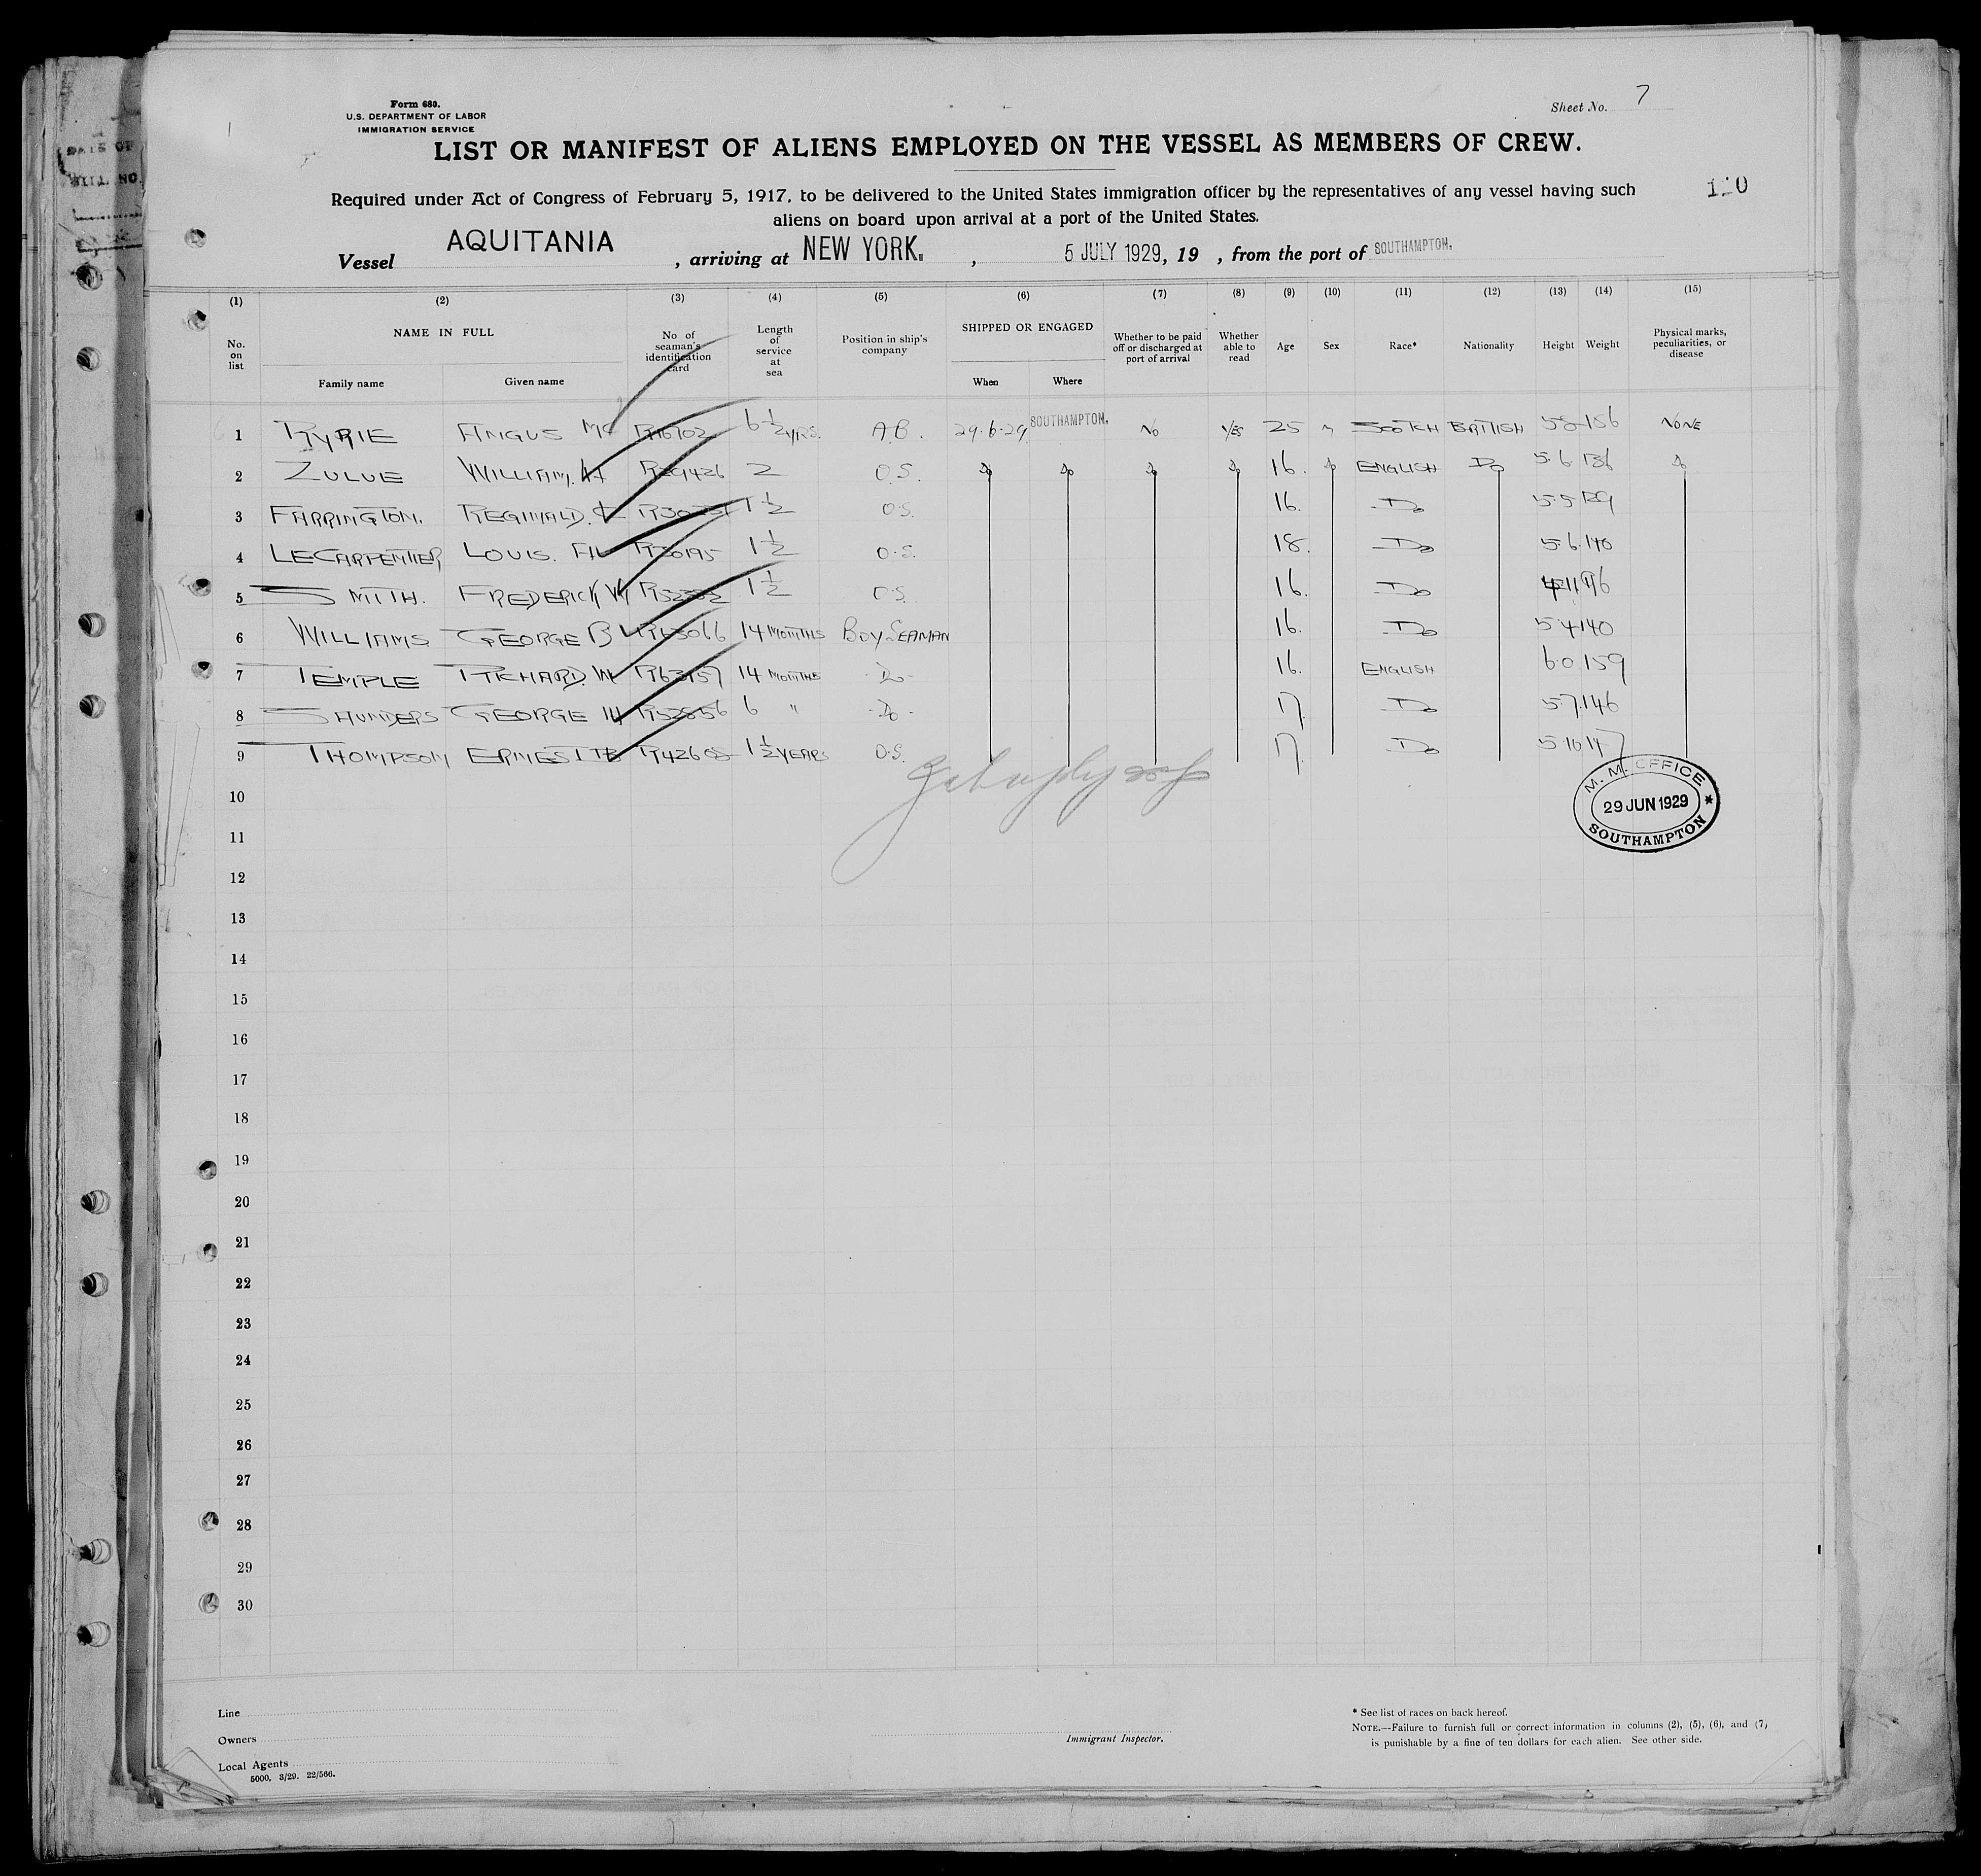 Form 680.
U.S. DEPARTMENT OF LABOR
IMMIGRATION SERVICE
Sheet No. 7
LIST OR MANIFEST OF ALIENS EMPLOYED ON THE VESSEL AS MEMBERS OF CREW.
Required under Act of Congress of February 5, 1917, to be delivered to the United States immigration officer by the representatives of any vessel having such
aliens on board upon arrival at a port of the United States.
Vessel AQUITANIA, arriving at NEW YORK., 5 JULY 1929, 19 , from the port of SOUTHAMPTON.
(1) (2) (3) (4) (5) (6) (7) (8) (9) (10) (11) (12) (13) (14) (15)
No. on list NAME IN FULL Family name Given name No of seaman's identification card Length of service at sea Position in ship's company SHIPPED OR ENGAGED When Where Whether to be paid off or discharged at port of arrival Whether able to read Age Sex Race* Nationality Height Weight Physical marks, peculiarities, or disease
1 RYRIE ANGUS 6 1/2 YRS. A.B. 29.6.29 SOUTHAMPTON. NO YES 25 M SCOTCH BRITISH 5.8 156 NONE
2 ZULUE WILLIAM. H 2 O.S. Do Do Do Do 16. Do ENGLISH Do 5.6 136 Do
3 FARRINGTON. REGINALD. 1 1/2 O.S. 16. Do 5.5 129
4 LECARPENTIER LOUIS. R30195 1 1/2 O.S. 18. Do 5.6 140
5 SMITH. FREDERICK W 1 1/2 O.S. 16. Do 4.11 96
6 WILLIAMS GEORGE B R63066 14 MONTHS BOY SEAMAN 16. Do 5.4 140
7 TEMPLE RICHARD. W R63157 14 MONTHS -Do- 16. ENGLISH 6.0 159
8 SAUNDERS GEORGE W 6 " -Do- 17 Do 5.7 146
9 THOMPSON ERNEST TB 1 1/2 YEARS O.S. 17 Do 5.10 147
M. M. OFFICE
29 JUN 1929
SOUTHAMPTON
10
11
12
13
14
15
16
17
18
19
20
21
22
23
24
25
26
27
28
29
30
Line
Owners
Local Agents
5000. 3/29. 22/566.
Immigrant Inspector.
* See list of races on back hereof.
NOTE.—Failure to furnish full or correct information in columns (2), (5), (6), and (7)
is punishable by a fine of ten dollars for each alien. See other side.